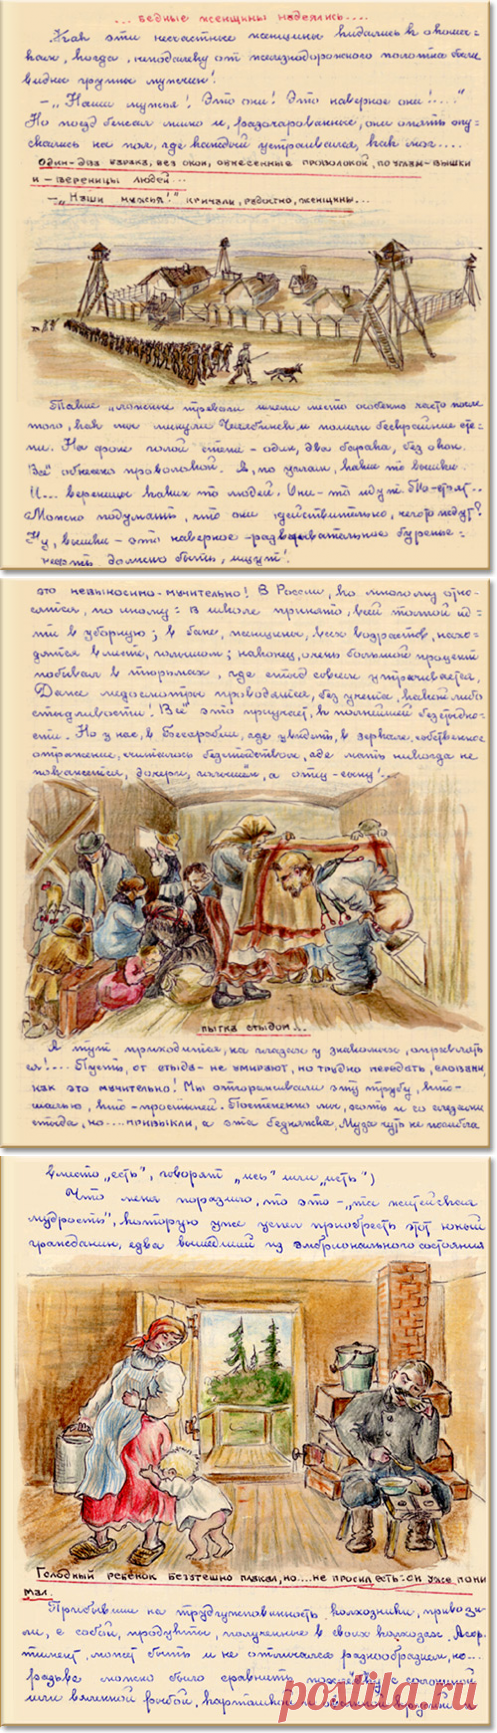 ... бедные женщины надеялись....
Как эти несчастные женщины кидались к окошеч=
кам, когда, неподалеку от железнодорожного полотна были
видны группы мужчин!
— „Наши мужья! Это они! Это наверное они!...."
Но поезд бежал мимо и, разочарованные, они опять опу-
скались на пол, где каждый устраивался, как мог....
Один-два барака, без окон, обнесенные проволокой, по углам-вышки
и - вереницы людей...
— „Наши мужья!" кричали, радостно, женщины...
Такие „ложные тревоги имели место особенно часто после
того, как мы минули Челябинск и пошли бескрайние сте-
пи. На фоне голой степи - один, два барака, без окон.
Всё обнесено проволокой. А, по углам, какие то вышки.
И... вереницы каких то людей. Они-то идут. Стоят..
Можно подумать, что они, действительно, чего-то ждут?
Ну, вышки - это наверное - разведовательное буренье:
нефть должно быть, ищут!
это невыносимо-мучительно! В России, ко многому отно-
сятся, по иному: в школе принято, всей толпой ид-
ти в уборную; в бане, женщины, всех возрастов, нахо-
дятся вместе, голышом; наконец, очень большой процент
побывал в тюрьмах, где стыд совсем утрачивается.
Даже медосмотры проводятся, без учета, какой либо
стыдливости! Всё это приучает, к полнейшей бесстыдно-
сти. Но у нас, в Бессарабии, где увидеть, в зеркале, собственное
отражение, считалось бесстыдством, где мать никогда не
покажется, дочери, голышом, а отец - сыну!...
пытка стыдом...
А тут приходится, на глазах у знакомых, оправлять
ся!.... Пусть, от стыда - не умирают, но трудно передать, словами,
как это мучительно! Мы отгораживали эту трубу, кто-
шалью, кто-простыней. Постепенно мы, хоть и со слезами
стыда, но....привыкли, а эта бедняжка, Муза чуть не погибла
вместо „есть", говорят „ись" или „исть")
Что меня поразило, то это - „та житейская
мудрость", которую уже успел приобресть этот юный
гражданин, едва вышедший из эмбрионального состояния
Голодный ребёнок безутешно плакал, но.... не просил есть: он уже пони
мал.
Прибывшие на трудгужповинность колхозники, привози-
ли, с собой, продукты, полученные в своих колхозах. Ассор-
тимент, может быть и не отличался разнообразием, но...
разве можно было сравнить похлёбку с солониной
или вяленой рыбой, картошкой и
postila.ru